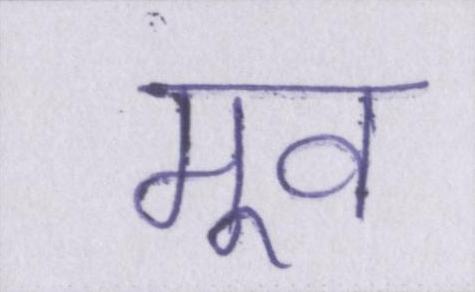 मूव